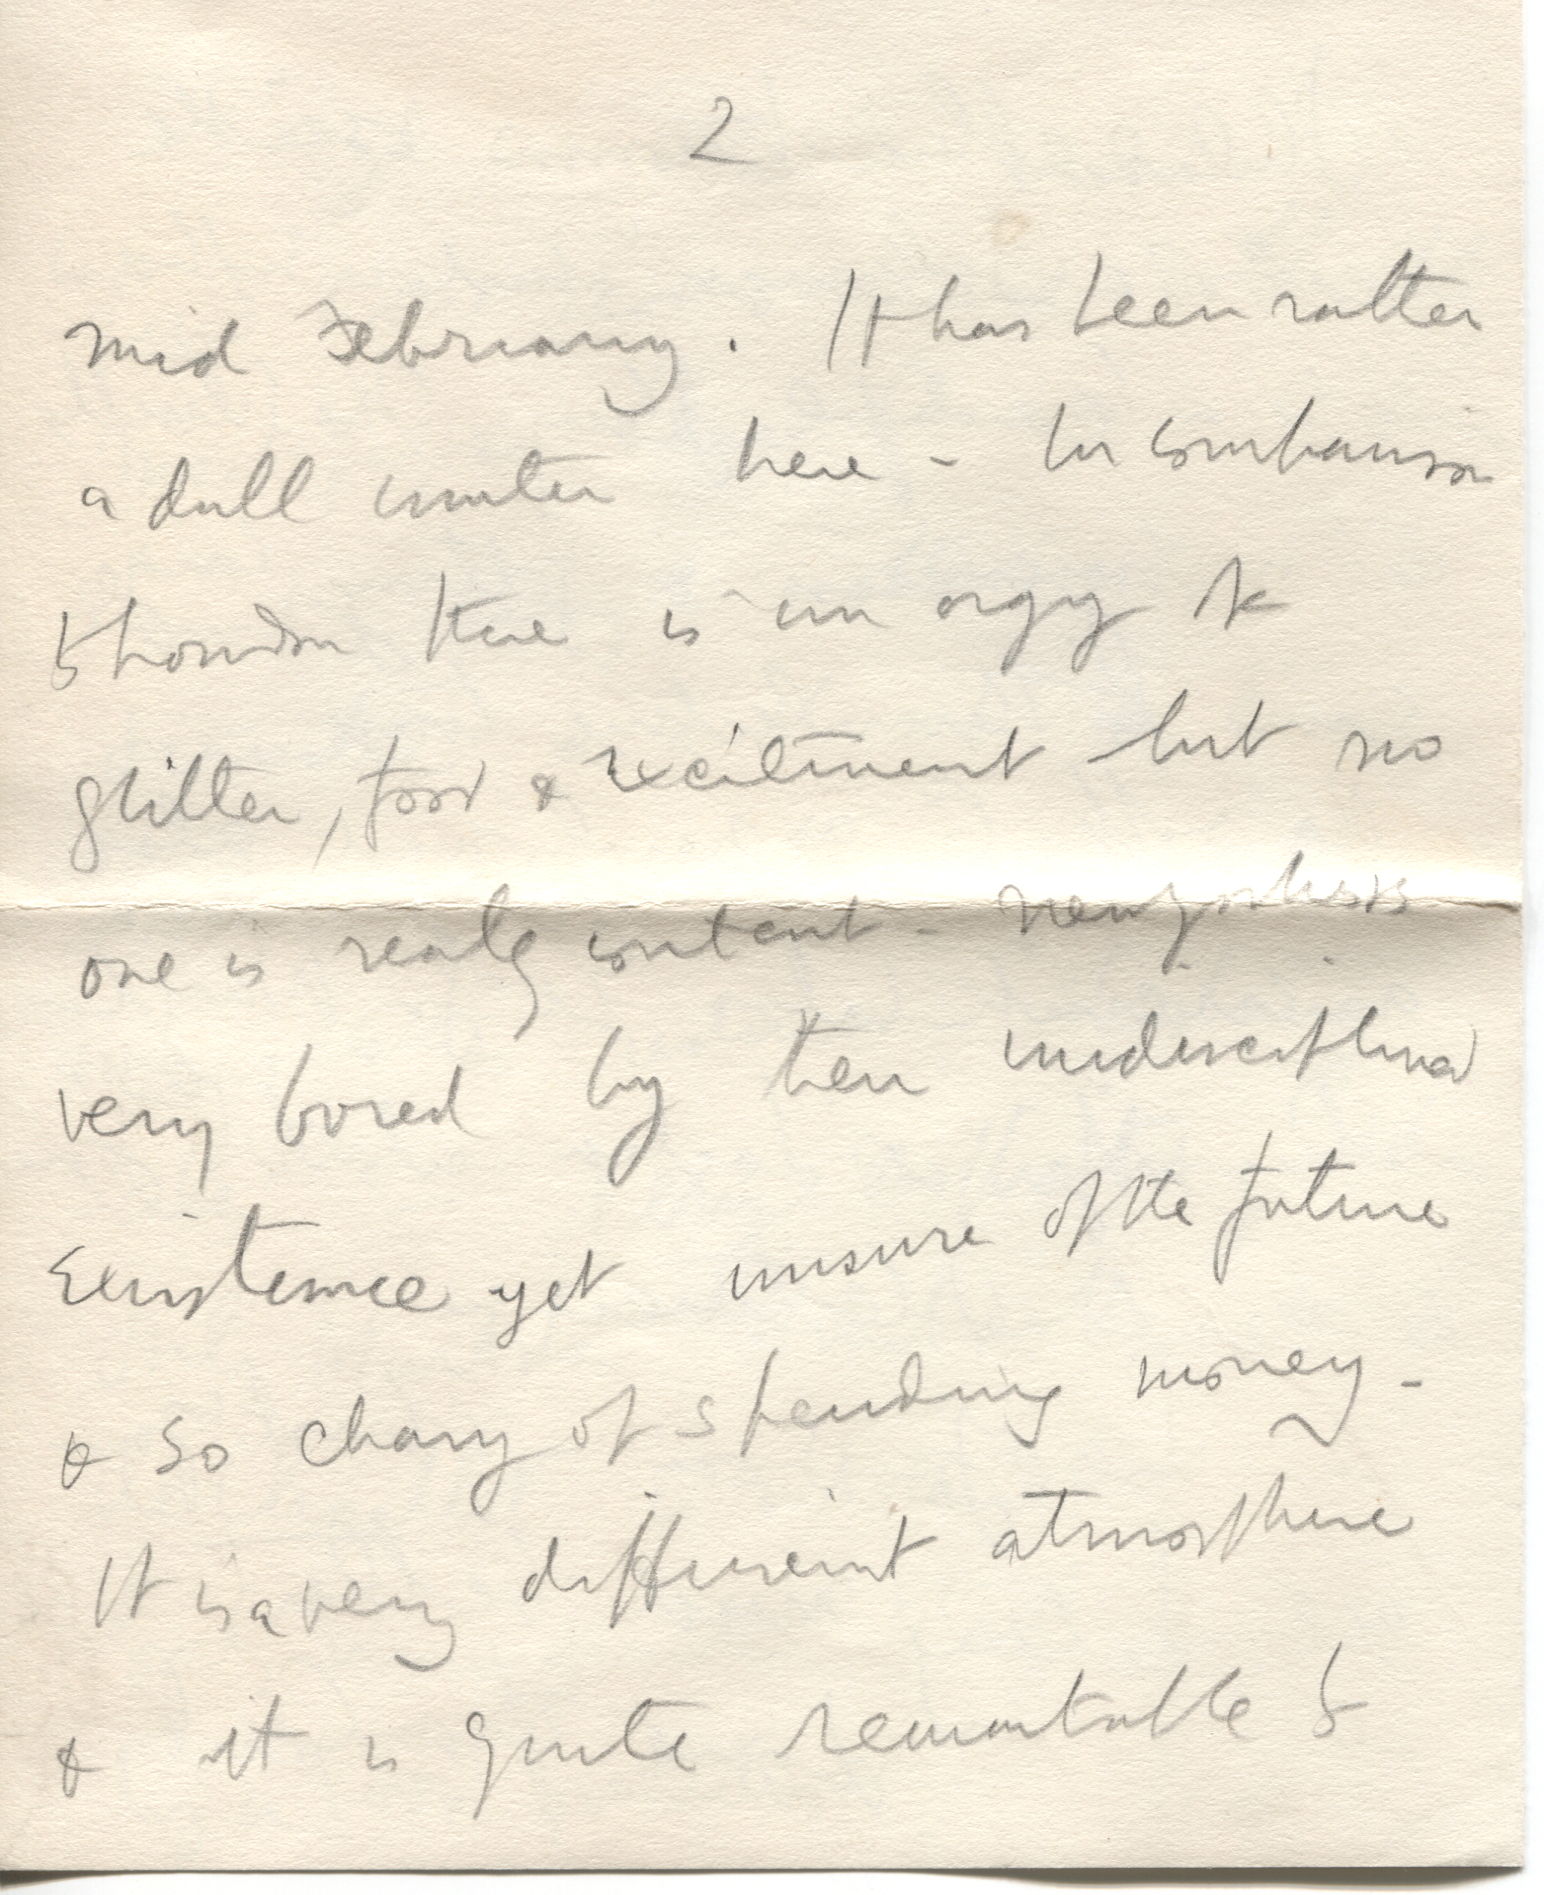 2
mid February. It has been rather
a dull winter here - In comparison
to London there is an orgy of
glitter, food & excitment but no
one is really content.
very bored by their undisciplined
existence yet unsure of the future
& so chary of spending money -
It is a very different atmosphere
& it is quite remarkable to